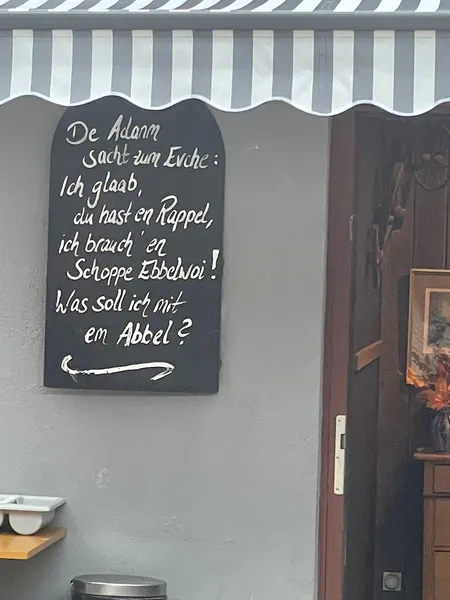 De Adamm
sacht zum Evche:
Ich glaab,
du hast en Rappel,
ich brauch' en
Schoppe Ebbelwoi!
Was soll ich mit
em Abbel?